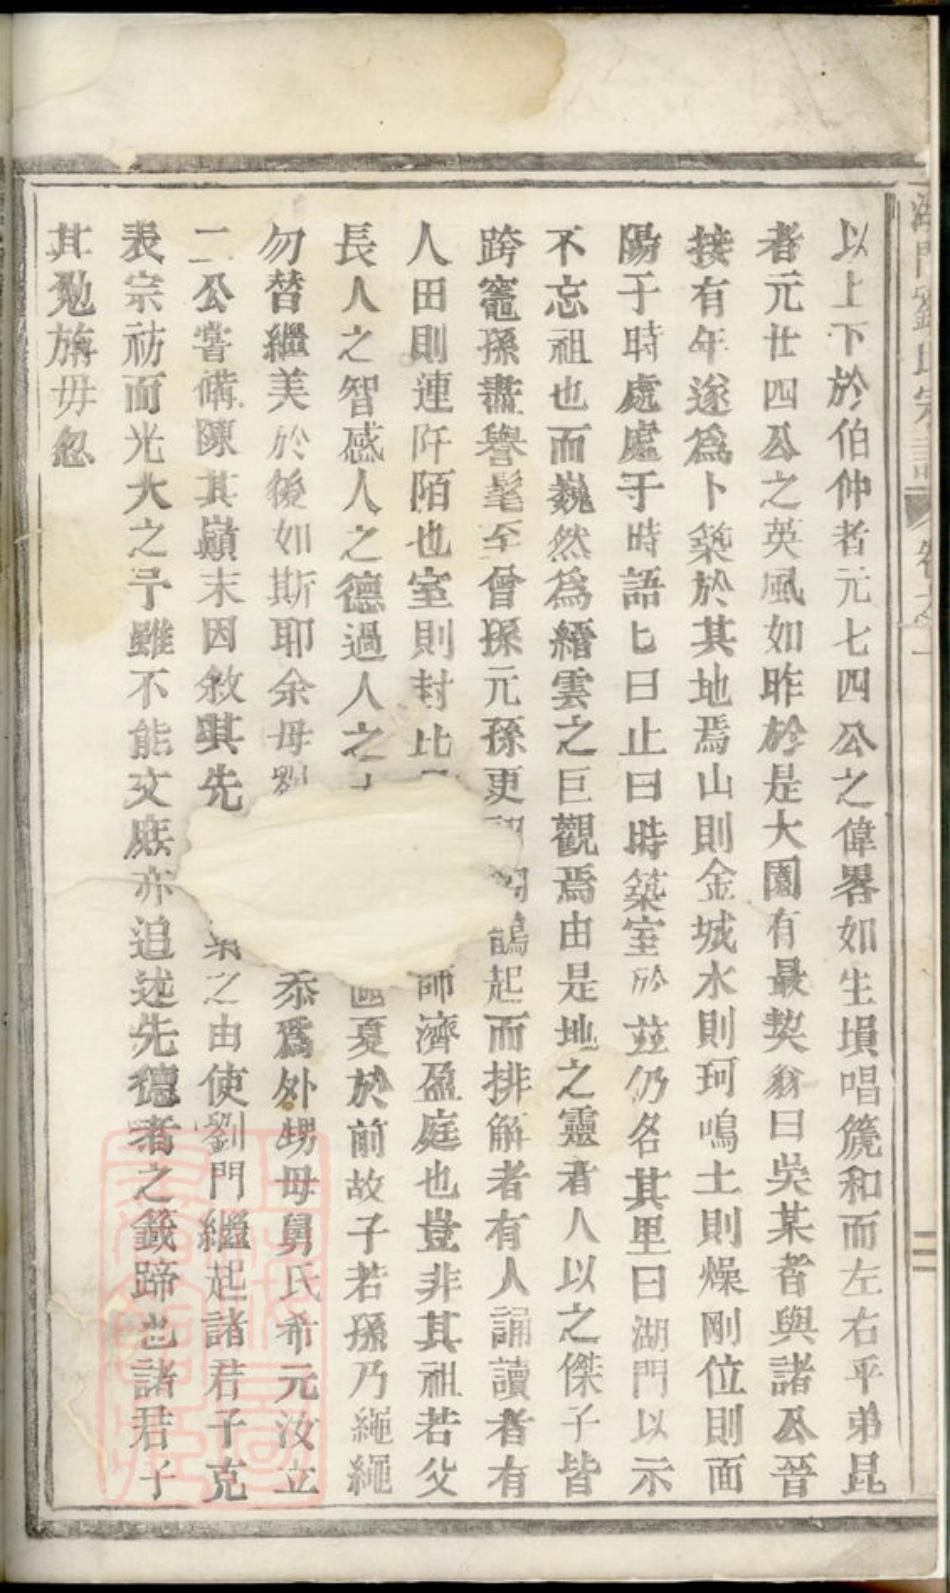 湖門劉氏宗譜 卷之一 二
以上下於伯仲者元七四公之偉畧如生塤唱篪和而左右乎弟昆
者元廿四公之英風如昨於是大園有最契翁曰吳某者與諸公晉
接有年遂爲卜築於其地焉山則金城水則珂鳴土則燥剛位則面
陽于時處處于時語匕曰止曰時築室於茲仍名其里曰湖門以示
不忘祖也而巍然爲縉雲之巨觀焉由是地之靈者人以之傑子皆
跨竈孫盡譽髦至曾孫元孫更 鵲起而排解者有人誦讀者有
人田則連阡陌也室則封比 師濟盈庭也豈非其祖若父
長人之智感人之德過人之 區夏於前故子若孫乃繩繩
勿替繼美於後如斯耶余母劉 忝爲外甥母舅氏希元汝立
二公嘗備陳其巔末因敘其先 之由使劉門繼起諸君子克
表宗祊而光大之予雖不能文庶亦追述先德者之籤蹄也諸君子
其勉旃毋忽